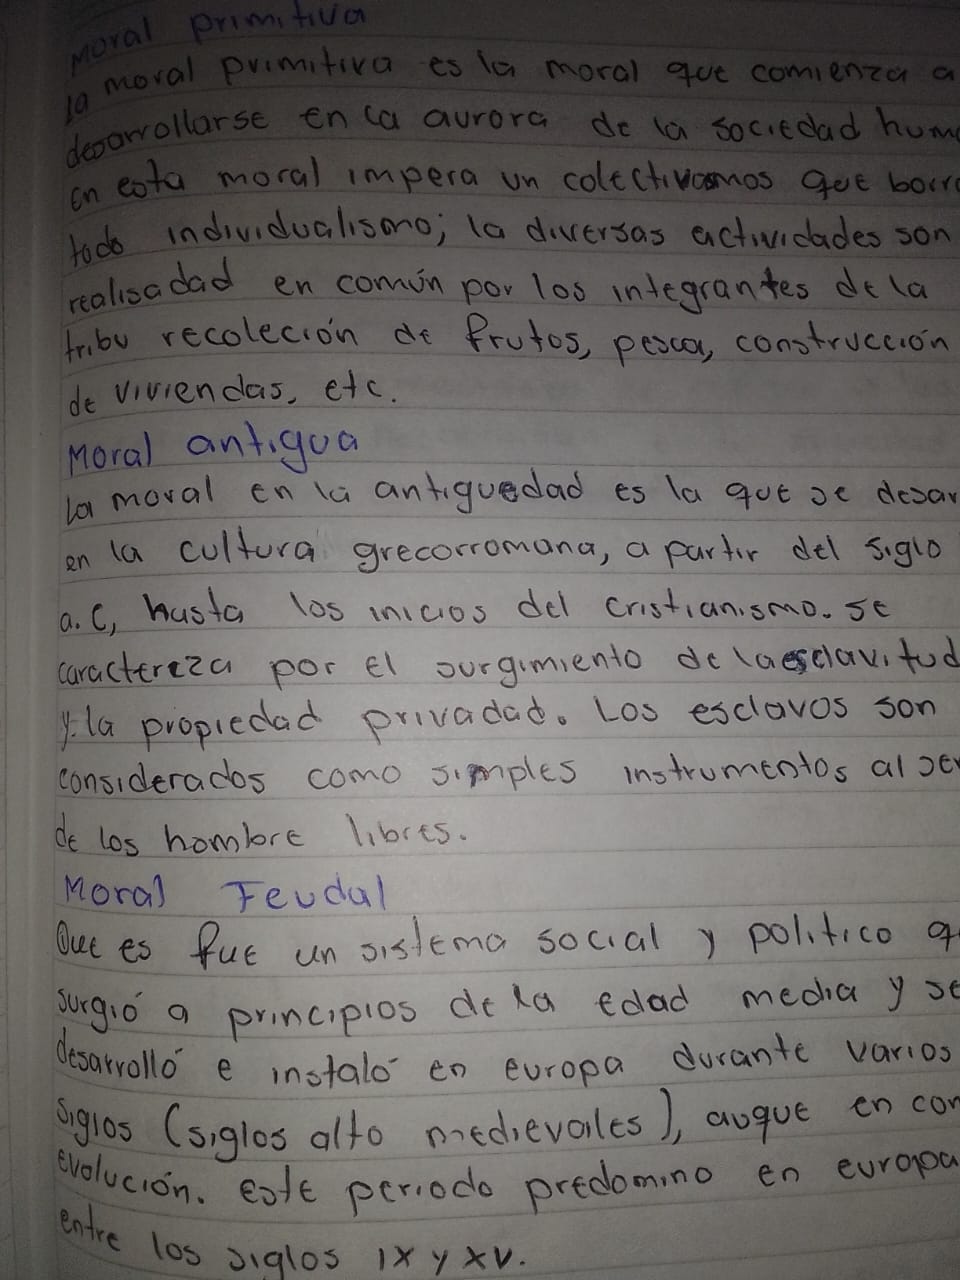 Moral primitiva
la moral primitiva es la moral que comienza a
desarrollarse en la aurora de la sociedad huma
en esta moral impera un colectivosmos que borra
todo individualismo; la diversas actividades son
realisadad en común por los integrantes de la
tribu recoleción de frutos, pesca, construcción
de viviendas, etc.
Moral antigua
La moral en la antiguedad es la que se desar
en la cultura grecorromana, a partir del siglo
a.C, hasta los inicios del cristianismo. se
caractereza por el surgimiento de la esclavitud
y la propiedad privadad. Los esclavos son
considerados como simples instrumentos al ser
de los hombre libres.
Moral Feudal
Que es fue un sistema social y politico q
surgió a principios de la edad media y se
desarrolló e instaló en europa durante varios
siglos (siglos alto medievales), auque en con
evolución. este periodo predomino en europa
entre los siglos IX y XV.